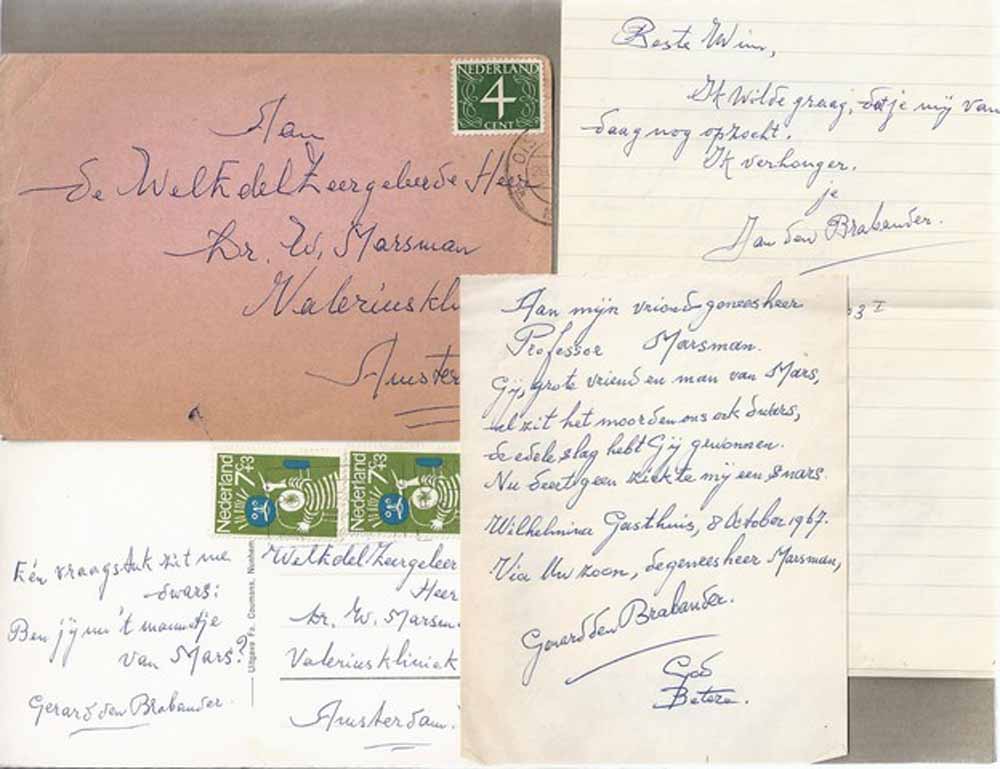 NEDERLAND
4
CENT
Aan
de WelEdelZeergeleerde Heer
Dr. W. Marsman
Valeriuskli
Amster
Beste Wim,
Ik wilde graag, dat je mij van
daag nog opzocht.
Ik verhonger.
je
Jan den Brabander.
03 I
Aan mijn vriend-geneesheer
Professor Marsman.
Gij, grote vriend en man van Mars,
al zit het moorden ons ook dwars,
de edele slag hebt Gij gewonnen.
Nu deert geen ziekte mij een snars.
Wilhelmina Gasthuis, 8 October 1967.
Via Uw zoon, de geneesheer Marsman,
Gerard den Brabander.
God
Betere.
Nederland 7c+3
Nederland 7c+3
Eén vraagstuk zit me
dwars:
Ben jij nu 't mannetje
van Mars?
Gerard den Brabander.
Uitgave Fa. Coumans,
WelEdelZeergeleer
Heer
Dr. W. Marsm
Valeriuskliniek
Amsterdam.